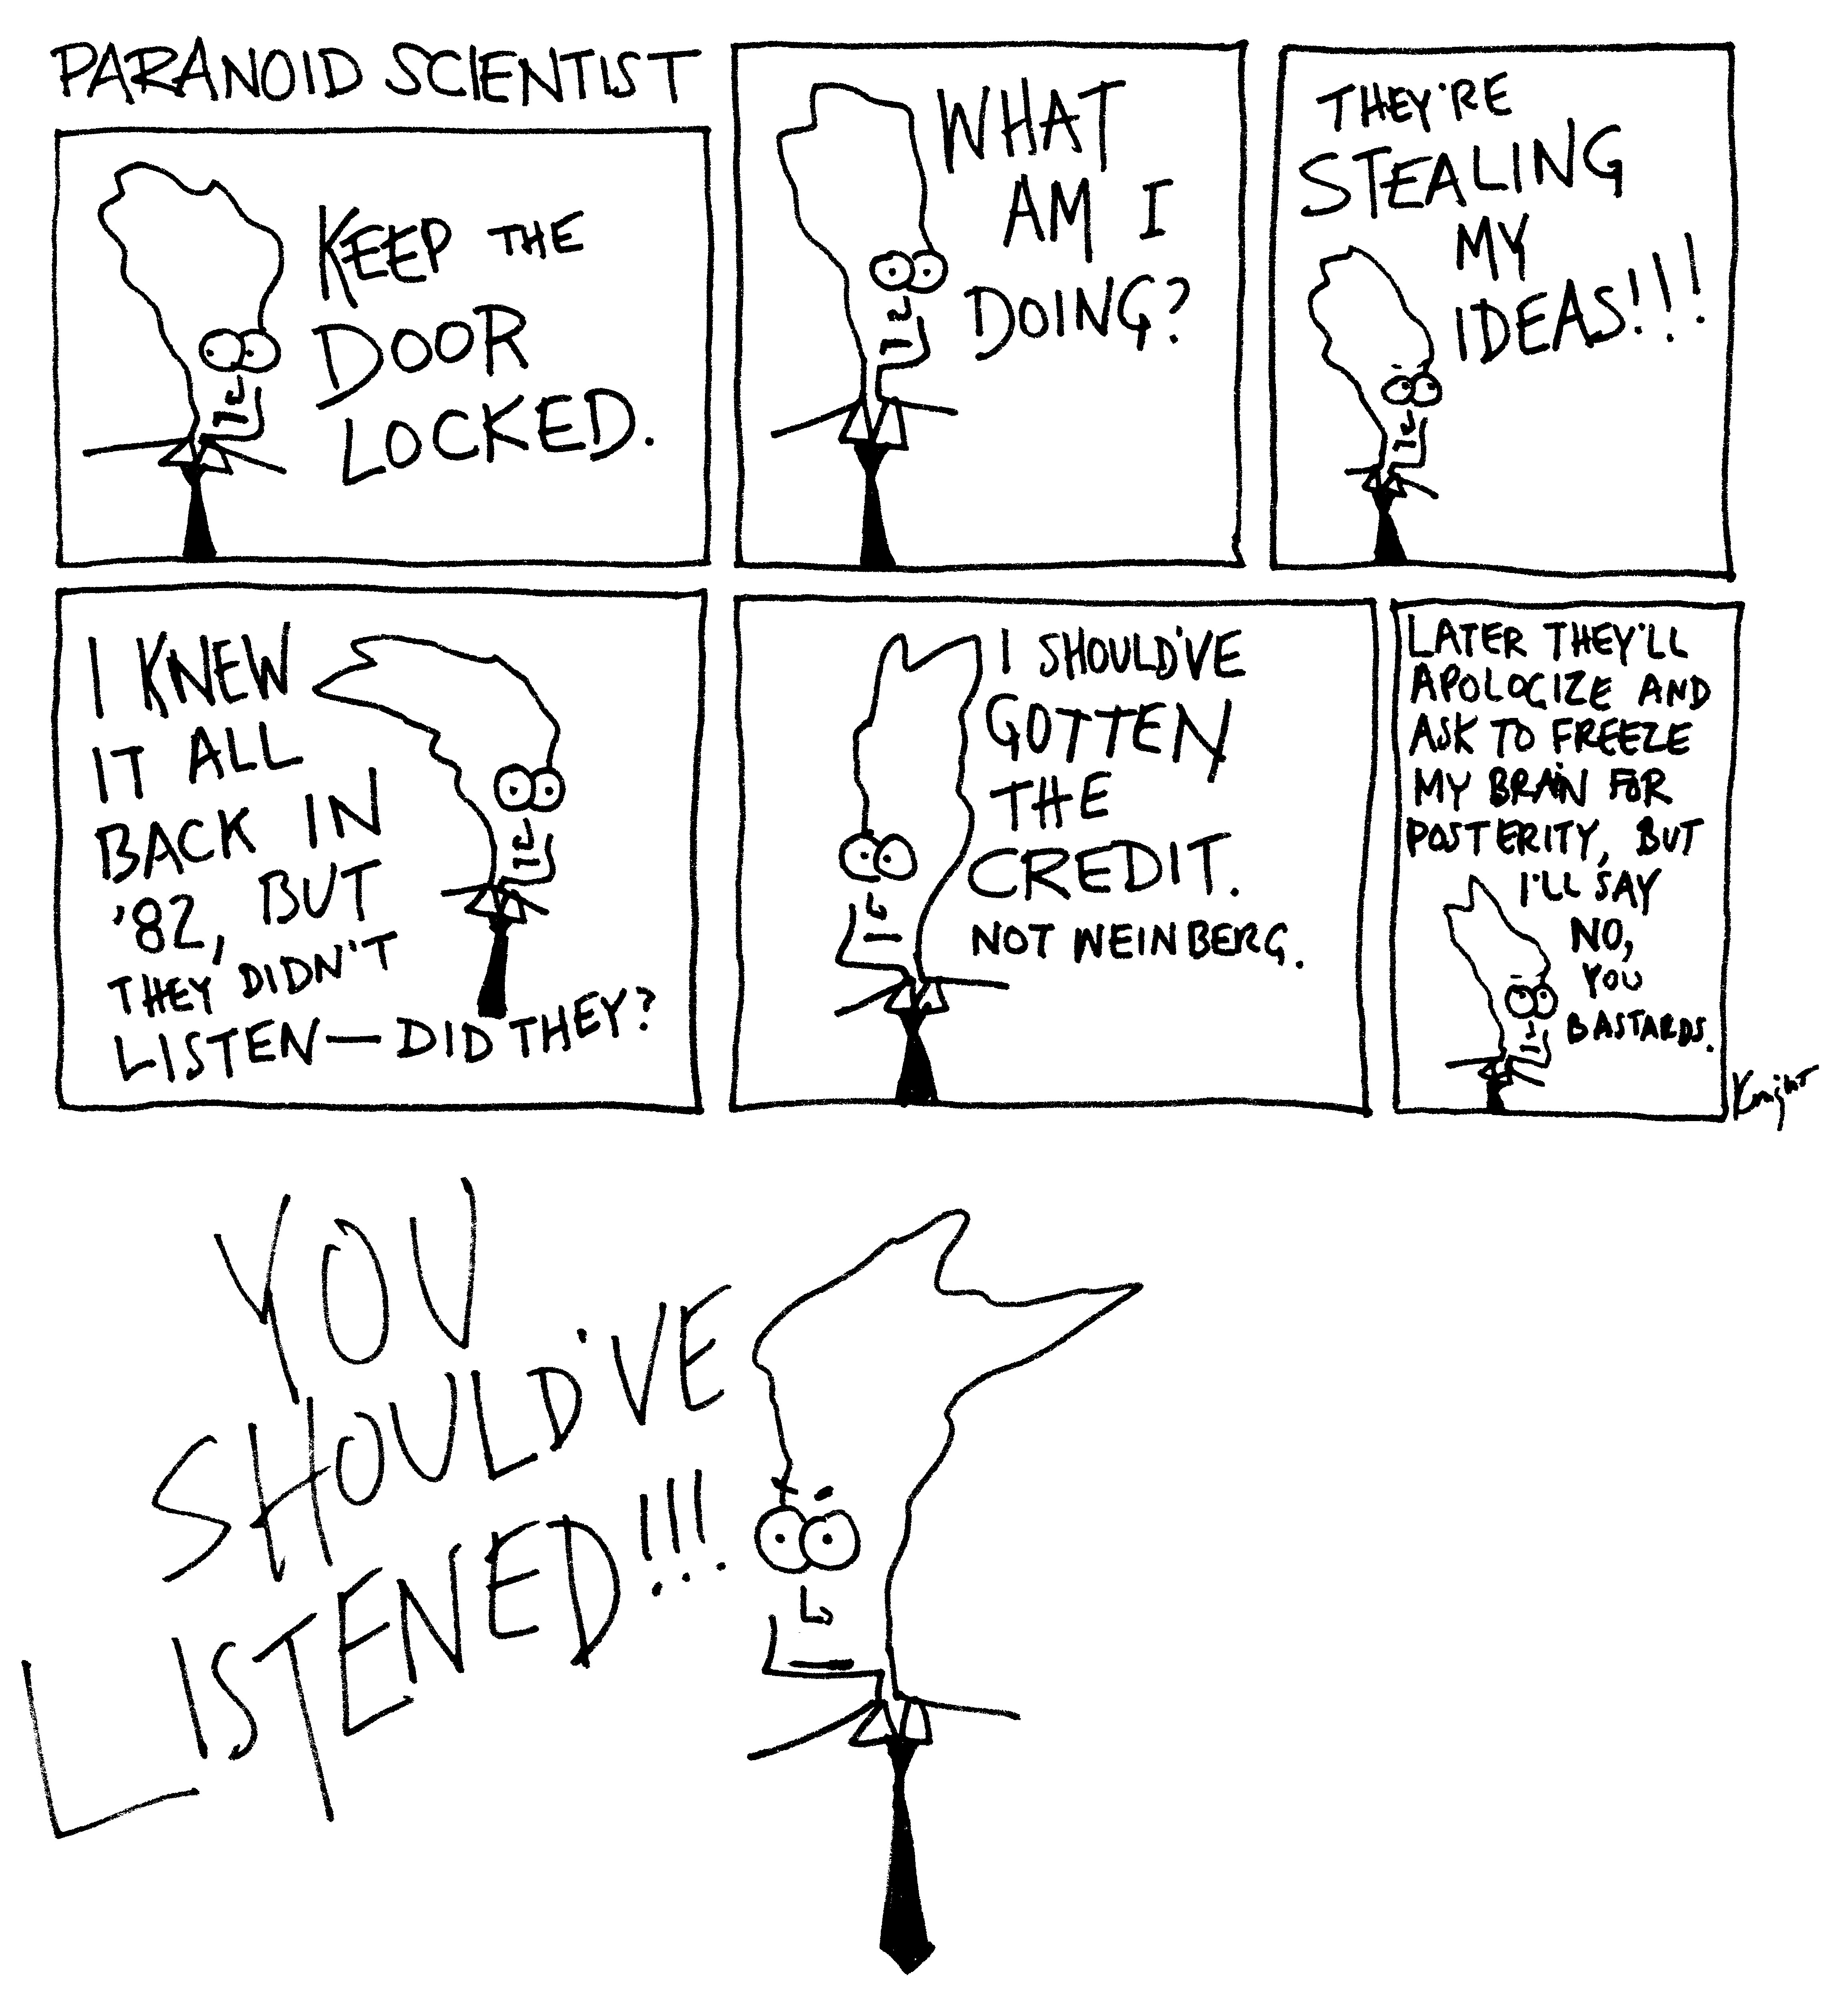 PARANOID SCIENTIST
KEEP THE
DOOR
LOCKED.
WHAT
AM I
DOING?
THEY'RE
STEALING
MY
IDEAS!!!
I KNEW
IT ALL
BACK IN
'82, BUT
THEY DIDN'T
LISTEN—DID THEY?
I SHOULD'VE
GOTTEN
THE
CREDIT.
NOT WEINBERG.
LATER THEY'LL
APOLOGIZE AND
ASK TO FREEZE
MY BRAIN FOR
POSTERITY, BUT
I'LL SAY
NO,
YOU
BASTARDS.
Knight
YOU
SHOULD'VE
LISTENED!!!